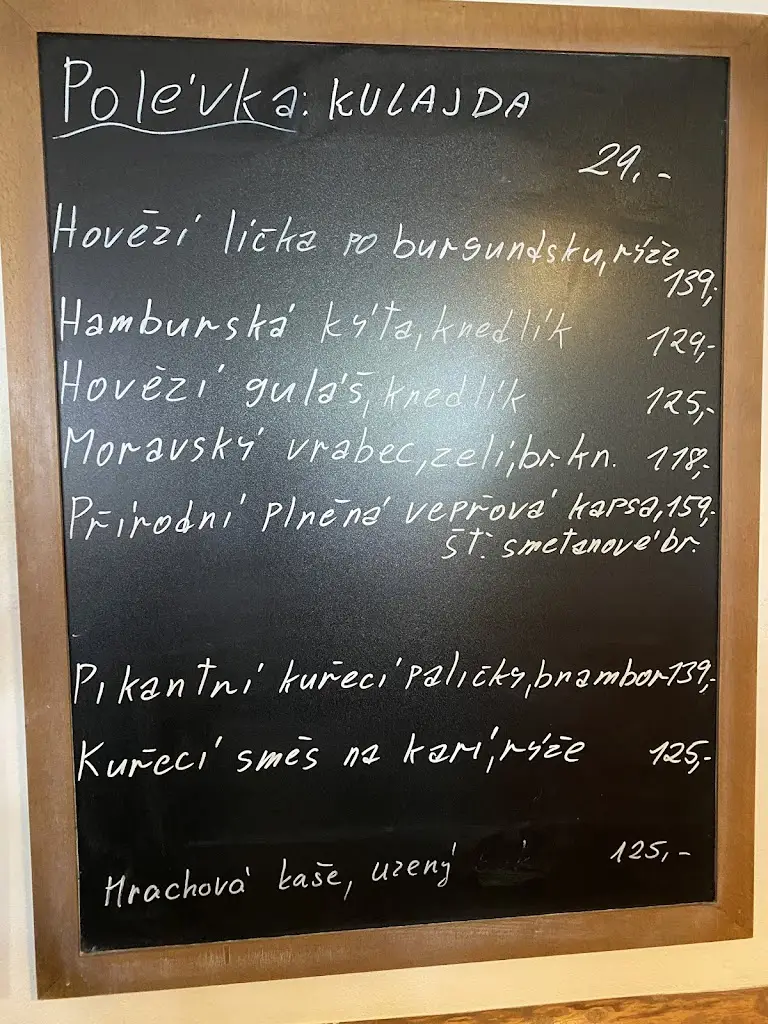 Polévka: KULAJDA
29,-
Hovězí líčka po burgundsku, rýže
139,-
Hamburská kýta, knedlík 129,-
Hovězí guláš, knedlík 125,-
Moravský vrabec, zelí, br. kn. 118,-
Přírodní plněná vepřová kapsa, 159,-
šť. smetanové br.
Pikantní kuřecí paličky, brambor 139,-
Kuřecí směs na kari, rýže 125,-
Hrachová kaše, uzený 125,-